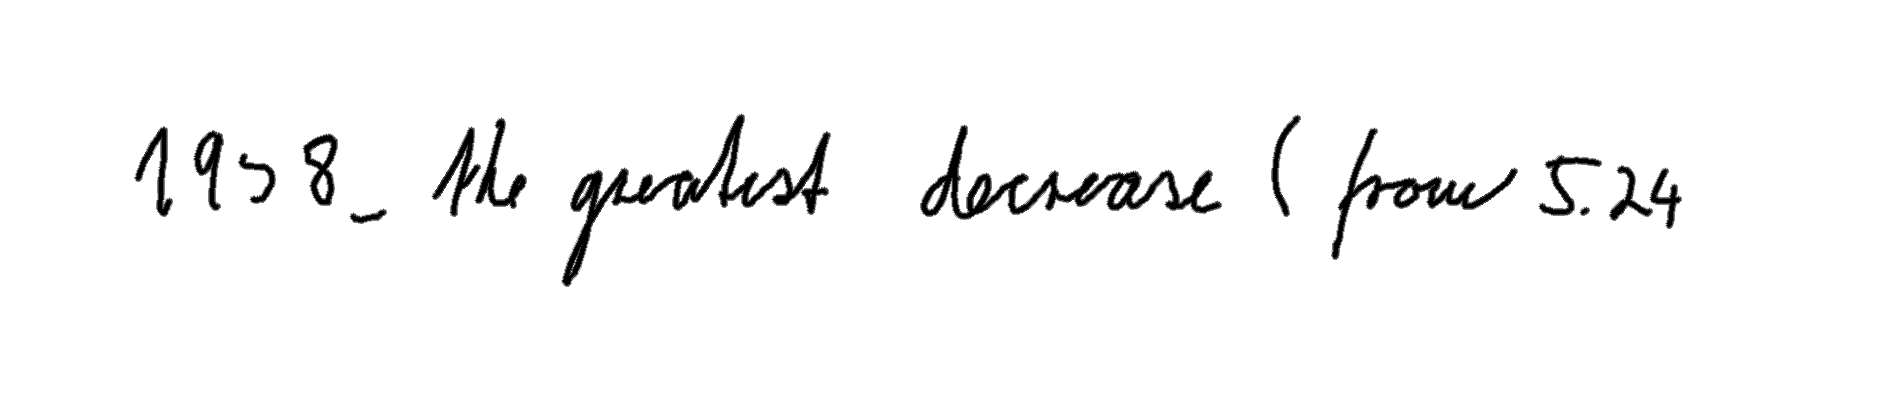 1958_ the greatest decrease (from 5.24